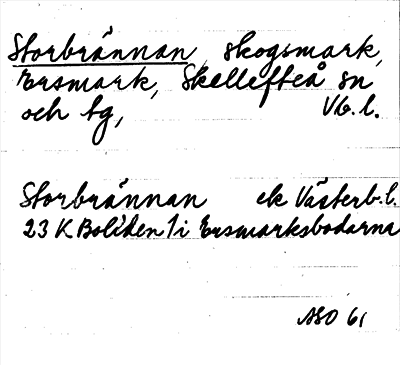 Storbrännan, skogsmark,
Ersmark, Skellefteå sn
och tg, Vb. l.
Storbrännan ek Västerb. l.
23 K Boliden 1 i Ersmarksbodarna
ASO 61